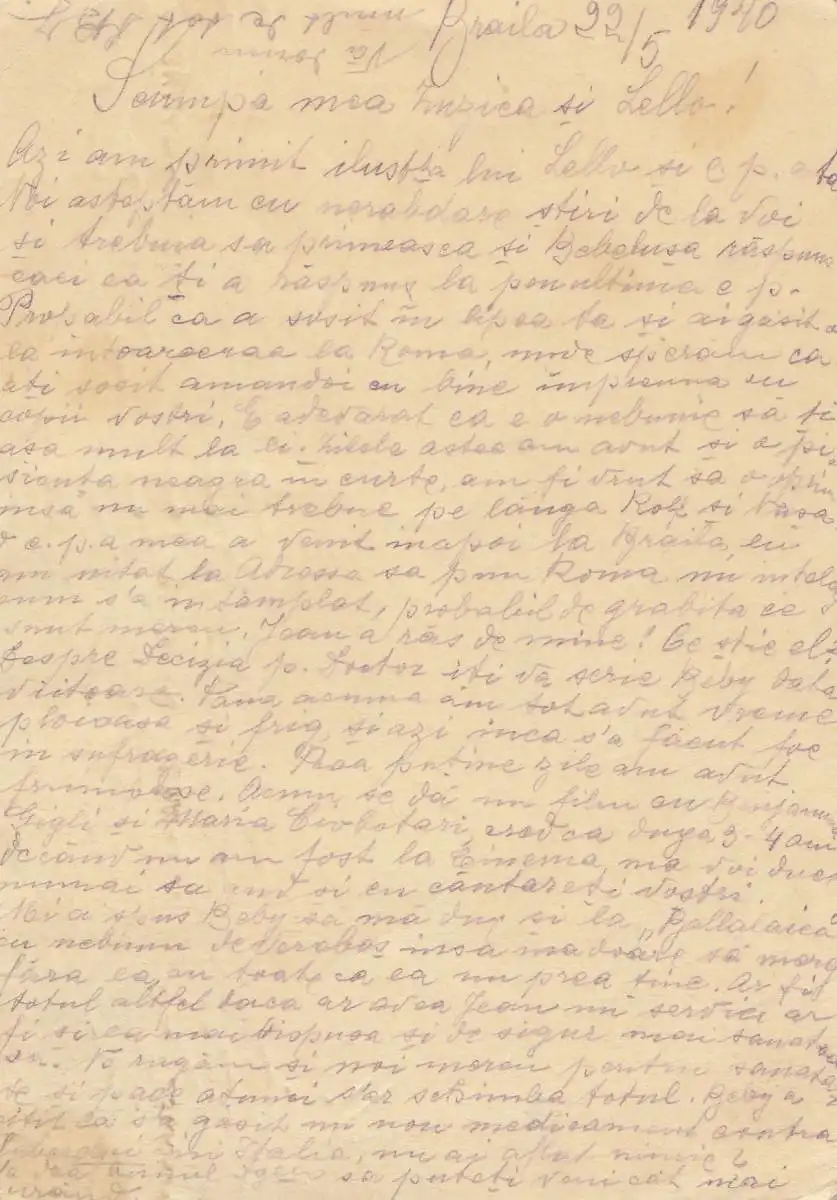 Braila 22/5 1940
Scumpa mea Zuzica si Lello!
Azi am primit ilustra lui Lello si c p. a ta
Noi asteptam cu nerabdare stiri de la voi
si trebuia sa primeasca si Bebelusa răspuns
caci ea ti a răspuns la penultima c p.
Probabil ca a sosit în lipsa ta si ai gasit o
la intoarcerea la Roma, unde speram ca
ati sosit amandoi cu bine impreuna cu
copii vostri. E adevarat ca e o nebunie să ti
asa mult la ei. Zilele astea am avut si o pi
sicuta neagra in curte, am fi vrut sa o oprim
insă nu mai trebue pe lânga Kotz si Vasa
c. p. a mea a venit inapoi la Brăila, eu
am uitat la Adressa sa pun Roma nu inteleg
cum s'a intâmplat, probabil de grabita ce
sunt mereu. Jean a râs de mine! Ce stie el?
Despre Decizia p. Doctor iti va scrie Beby data
viitoare. Pana acuma am tot avut vreme
ploioasa si frig, si azi inca s'a făcut foc
in sufragerie. Prea putine zile am avut
frumoase. Acum se dă un film cu Benjamino
Gigli si Maria Cebotari, cred ca dupa 3-4 ani
decând nu am fost la Cinema, ma voi duce
numai sa aud si eu cântareti vostri.
Mi a spus Beby sa mă duc si la "Ballalaica"
cu nebunu de insa ma doare să merg
făra ea, cu toate ca ea nu prea tine. Ar fi
totul altfel daca ar avea Jean un servici ar
fi si ea mai dispusa si de sigur mai sanatoa
sa. Vă rugăm si noi mereu pentru sanata
te si pace atunci s'ar schimba totul. Beby a
citit ca s'a gasit un nou medicament contra
in Italia, nu ai aflat nimic?
sa puteti veni cât mai